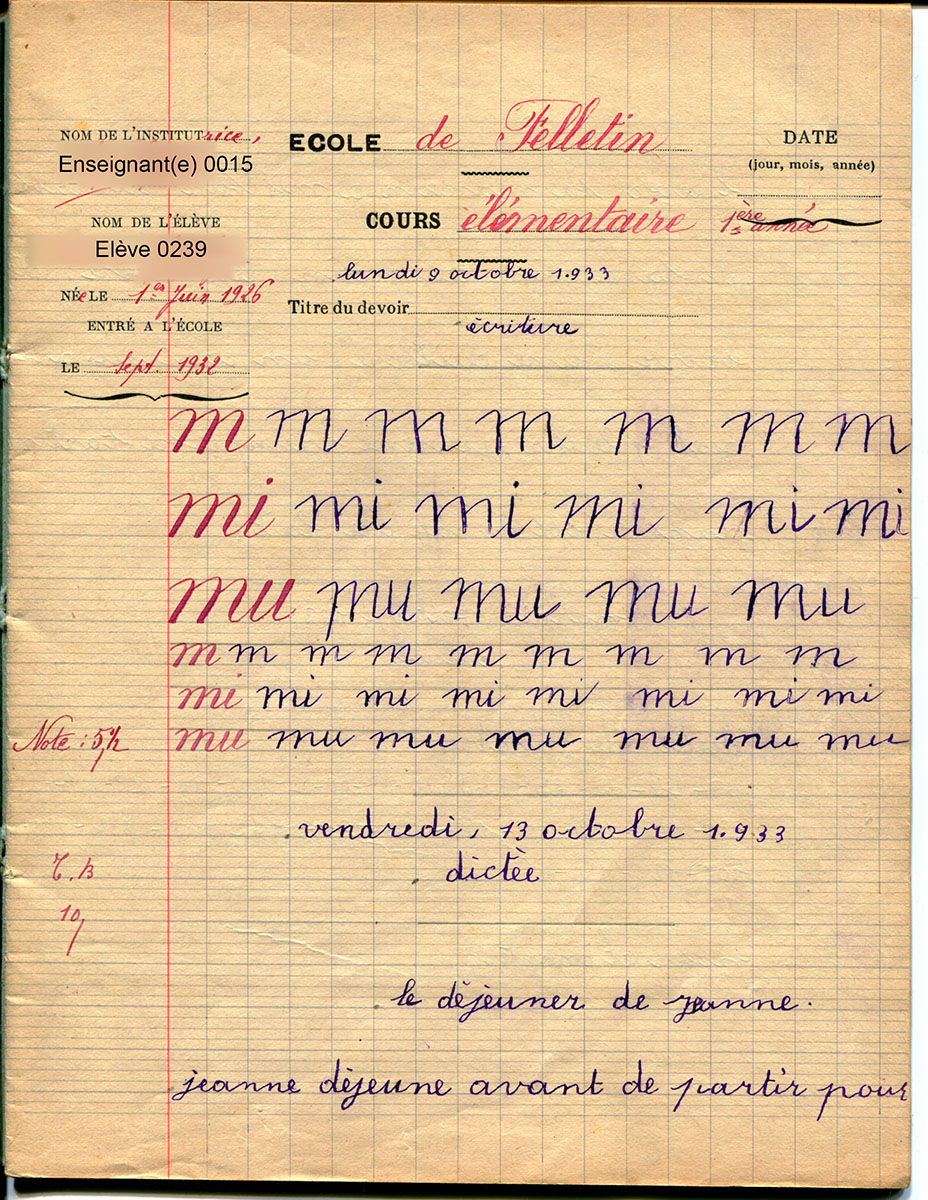 NOM DE L'INSTITUTrice,
Enseignant(e) 0015
ECOLE de Felletin
DATE
(jour, mois, année)
NOM DE L'ÉLÈVE
Elève 0239
COURS élémentaire 1ère année
lundi 9 octobre 1.933
NÉe LE 1er Juin 1926
Titre du devoir
écriture
ENTRÉ A L'ÉCOLE
LE Sept. 1932
m m m m m m m
mi mi mi mi mi mi
mu mu mu mu mu
m m m m m m m m m
mi mi mi mi mi mi mi mi
Note : 5½ mu mu mu mu mu mu mu
vendredi, 13 octobre 1.933
T.B
dictèe
10
le dèjèuner de jeanne.
jeanne dèjeune avant de partir pour